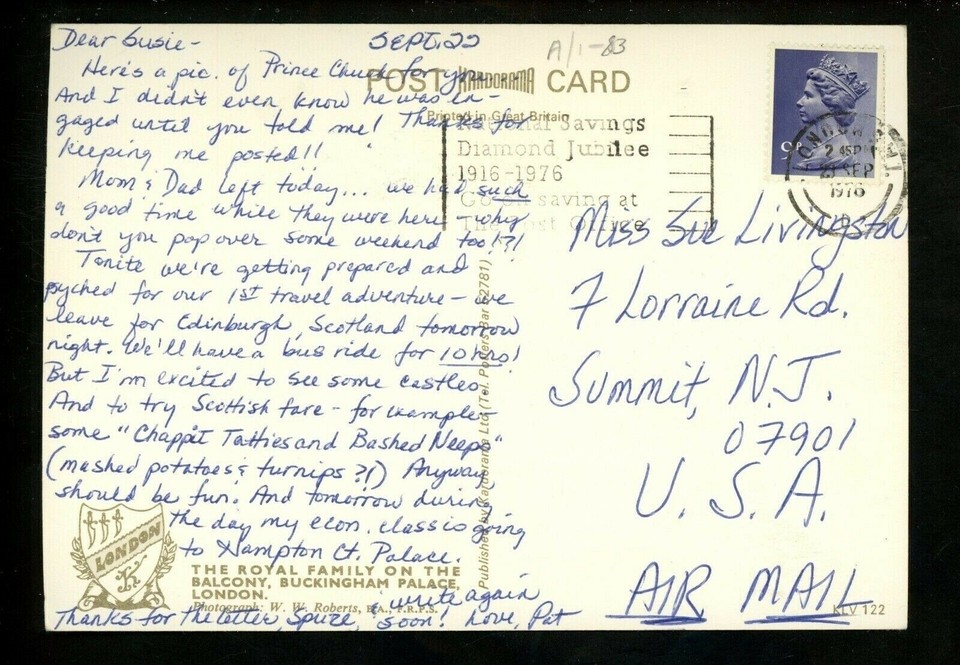 Dear Susie - SEPT. 22
Here's a pic. of Prince Chuck for you.
And I didn't even know he was en-
gaged until you told me! Thanks for
keeping me posted!!
Mom & Dad left today... we had such
a good time while they were here - why
don't you pop over some weekend too!?!
Tonite we're getting prepared and
psyched for our 1st travel adventure - we
leave for Edinburgh, Scotland tomorrow
night. We'll have a bus ride for 10 hrs!
But I'm excited to see some castles
And to try Scottish fare - for example
some "Chappit Tatties and Bashed Neeps"
(mashed potatoes & turnips ?!) Anyway,
should be fun! And tomorrow during
the day my econ. class is going
to Hampton Ct. Palace.
Thanks for the letter, Spuze, & write again
soon! Love, Pat
A/1-83
POST KARDORAMA CARD
Printed in Great Britain
National Savings
Diamond Jubilee
1916-1976
Go on saving at
The Post Office
9P
LONDON
2 45P
SEP
1976
Miss Sue Livingston
7 Lorraine Rd.
Summit, N.J.
07901
U.S.A.
AIR MAIL
Published by Kardorama Ltd. (Tel. Potters Bar 52781)
LONDON
THE ROYAL FAMILY ON THE
BALCONY, BUCKINGHAM PALACE,
LONDON.
Photograph: W. W. Roberts, F.R.P.S.
KLV 122